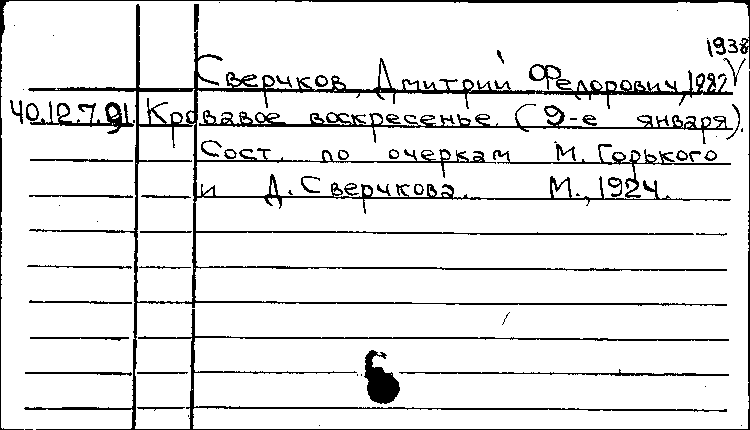 1938
Сверчков, Дмитрий Федорович, 1882
40.12.7.91. Кровавое воскресенье. (9-е января).
Сост. по очеркам М. Горького
и Д. Сверчкова. М., 1924.